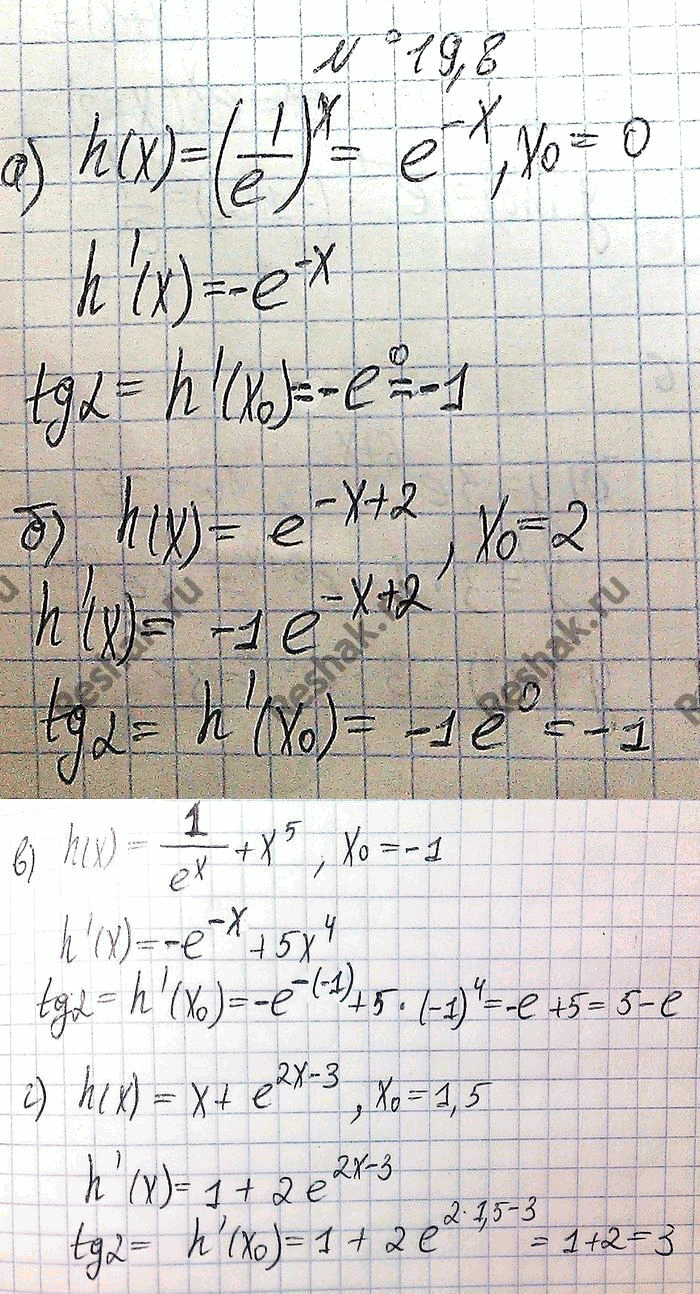 № 19,8
а) h(x) = (1/e)^x = e^{-x}, x₀ = 0
h'(x) = -e^{-x}
tg α = h'(x₀) = -e⁰ = -1
б) h(x) = e^{-x+2}, x₀ = 2
h'(x) = -1 e^{-x+2}
tg α = h'(x₀) = -1 e⁰ = -1
Reshak.ru Reshak.ru Reshak.ru
в) h(x) = 1/e^x + x⁵, x₀ = -1
h'(x) = -e^{-x} + 5x⁴
tg α = h'(x₀) = -e^{-(-1)} + 5·(-1)⁴ = -e + 5 = 5 - e
г) h(x) = x + e^{2x-3}, x₀ = 1,5
h'(x) = 1 + 2e^{2x-3}
tg α = h'(x₀) = 1 + 2e^{2·1,5-3} = 1 + 2 = 3